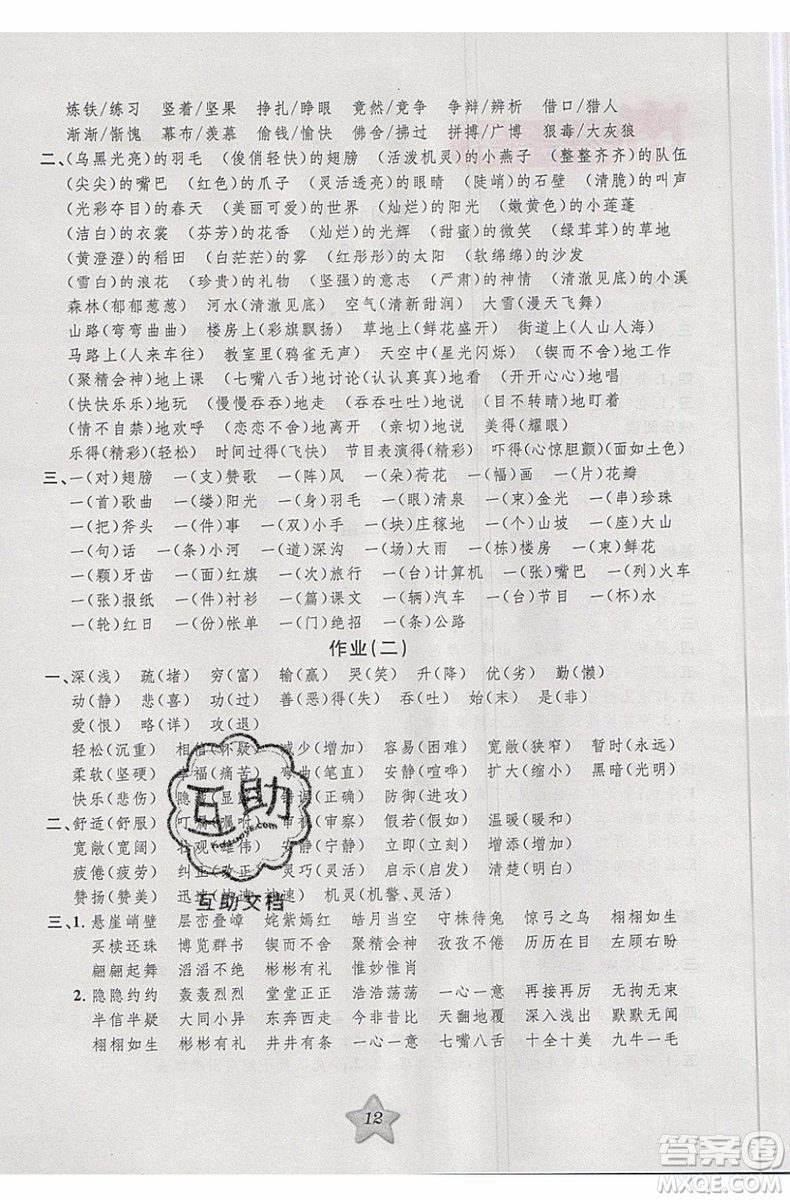 炼铁/练习 竖着/坚果 挣扎/睁眼 竟然/竞争 争辩/辨析 借口/猎人
渐渐/惭愧 幕布/羡慕 偷钱/愉快 佛舍/拂过 拼搏/广博 狠毒/大灰狼
二、(乌黑光亮)的羽毛 (俊俏轻快)的翅膀 (活泼机灵)的小燕子 (整整齐齐)的队伍
(尖尖)的嘴巴 (红色)的爪子 (灵活透亮)的眼睛 (陡峭)的石壁 (清脆)的叫声
(光彩夺目)的春天 (美丽可爱)的世界 (灿烂)的阳光 (嫩黄色)的小莲蓬
(洁白)的衣裳 (芬芳)的花香 (灿烂)的光辉 (甜蜜)的微笑 (绿茸茸)的草地
(黄澄澄)的稻田 (白茫茫)的雾 (红彤彤)的太阳 (软绵绵)的沙发
(雪白)的浪花 (珍贵)的礼物 (坚强)的意志 (严肃)的神情 (清澈见底)的小溪
森林(郁郁葱葱) 河水(清澈见底) 空气(清新甜润) 大雪(漫天飞舞)
山路(弯弯曲曲) 楼房上(彩旗飘扬) 草地上(鲜花盛开) 街道上(人山人海)
马路上(人来车往) 教室里(鸦雀无声) 天空中(星光闪烁) (锲而不舍)地工作
(聚精会神)地上课 (七嘴八舌)地讨论(认认真真)地看 (开开心心)地唱
(快快乐乐)地玩 (慢慢吞吞)地走 (吞吞吐吐)地说 (目不转睛)地盯着
(情不自禁)地欢呼 (恋恋不舍)地离开 (亲切)地说 美得(耀眼)
乐得(精彩)(轻松) 时间过得(飞快) 节目表演得(精彩) 吓得(心惊胆颤)(面如土色)
三、一(对)翅膀 一(支)赞歌 一(阵)风 一(朵)荷花 一(幅)画 一(片)花瓣
一(首)歌曲 一(缕)阳光 一(身)羽毛 一(眼)清泉 一(束)光芒 一(串)珍珠
一(把)斧头 一(件)事 一(双)小手 一(块)庄稼地 一(个)山坡 一(座)大山
一(句)话 一(条)小河 一(道)深沟 一(场)大雨 一(栋)楼房 一(束)鲜花
一(颗)牙齿 一(面)红旗 一(次)旅行 一(台)计算机 一(张)嘴巴 一(列)火车
一(张)报纸 一(件)衬衫 一(篇)课文 一(辆)汽车 一(台)节目 一(杯)水
一(轮)红日 一(份)帐单 一(门)绝招 一(条)公路
作业(二)
一、深(浅) 疏(堵) 穷(富) 输(赢) 哭(笑) 升(降) 优(劣) 勤(懒)
动(静) 悲(喜) 功(过) 善(恶)得(失) 吞(吐) 始(末) 是(非)
爱(恨) 略(详) 攻(退)
轻松(沉重) 相信(怀疑) 减少(增加) 容易(困难) 宽敞(狭窄) 暂时(永远)
柔软(坚硬) 幸福(痛苦) 弯曲(笔直) 安静(喧哗) 扩大(缩小) 黑暗(光明)
快乐(悲伤) 隐蔽(显露) 错误(正确) 防御(进攻)
二、舒适(舒服) 叮嘱(嘱咐) 审视(审察) 假若(假如) 温暖(暖和)
宽敞(宽阔) 壮观(雄伟) 安静(宁静) 立即(立刻) 增添(增加)
疲倦(疲劳) 纠正(改正) 灵巧(灵活) 启示(启发) 清楚(明白)
赞扬(赞美) 迅速(快速) 机灵(机警、灵活)
三、1. 悬崖峭壁 层峦叠嶂 姹紫嫣红 皓月当空 守株待兔 惊弓之鸟 栩栩如生
买椟还珠 博览群书 锲而不舍 聚精会神 孜孜不倦 历历在目 左顾右盼
翩翩起舞 滔滔不绝 彬彬有礼 惟妙惟肖
2. 隐隐约约 轰轰烈烈 堂堂正正 浩浩荡荡 一心一意 再接再厉 无拘无束
半信半疑 大同小异 东奔西走 今非昔比 天翻地覆 深入浅出 默默无闻
栩栩如生 彬彬有礼 井井有条 一心一意 七嘴八舌 十全十美 九牛一毛
12
互助
互助文档
答案圈
MXQE.COM